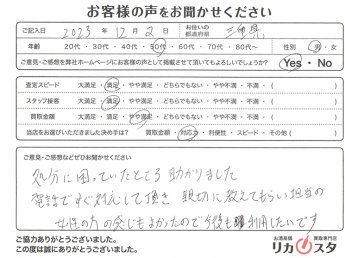 お客様の声をお聞かせください
ご記入日 2023年 12月 2日 お住いの都道府県 三重県
年齢 20代・30代・40代・50代・60代・70代・80代〜 性別 男・女
ご意見・ご感想を弊社ホームページにお客様の声として掲載させて頂いてもよろしいでしょうか? Yes・No
査定スピード 大満足・満足・やや満足・どちらでもない・やや不満・不満・( )
スタッフ接客 大満足・満足・やや満足・どちらでもない・やや不満・不満・( )
買取金額 大満足・満足・やや満足・どちらでもない・やや不満・不満・( )
当店をお選びいただきました決め手は? 買取金額・対応力・利便性・スピード・その他( )
ご意見・ご感想などぜひお聞かせください
処分に困っていたところ助かりました
電話ですぐ対応して頂き 親切に教えてもらい担当の
女性の方の感じもよかったので今後も利用したいです
ご協力ありがとうございました。
この度は誠にありがとうございました。
お酒買取 買取専門店
リカスタ